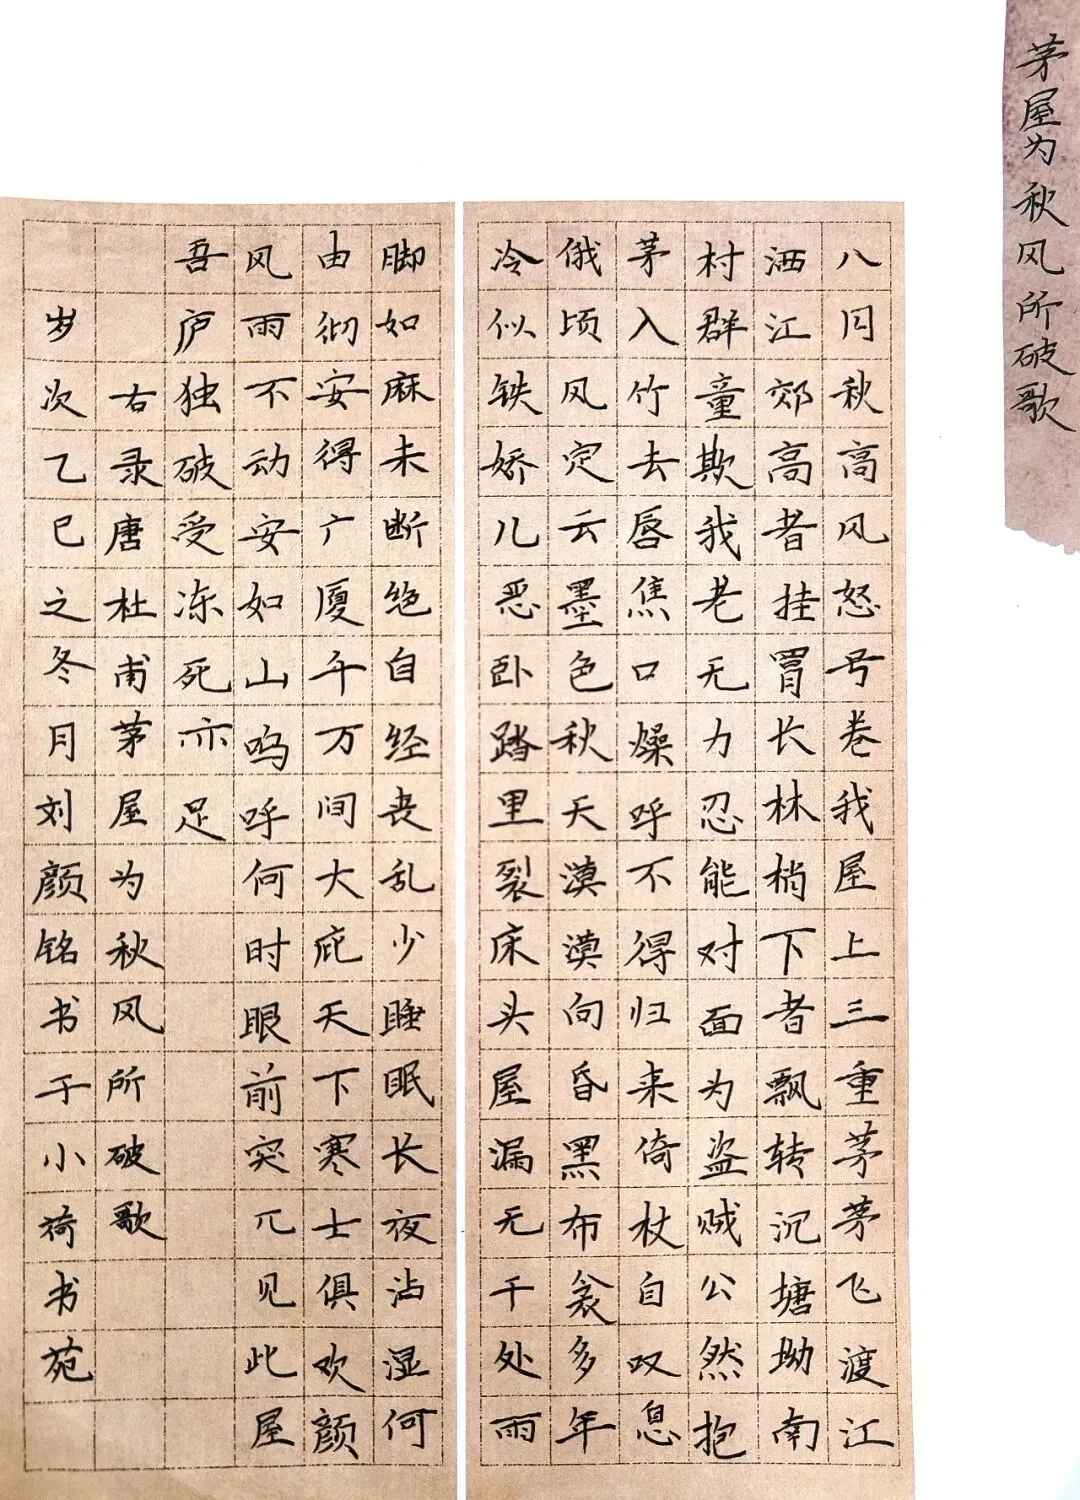 茅屋为秋风所破歌
八月秋高风怒号卷我屋上三重茅茅飞渡江
洒江郊高者挂罥长林梢下者飘转沉塘坳南
村群童欺我老无力忍能对面为盗贼公然抱
茅入竹去唇焦口燥呼不得归来倚杖自叹息
俄顷风定云墨色秋天漠漠向昏黑布衾多年
冷似铁娇儿恶卧踏里裂床头屋漏无干处雨
脚如麻未断绝自经丧乱少睡眠长夜沾湿何
由彻安得广厦千万间大庇天下寒士俱欢颜
风雨不动安如山呜呼何时眼前突兀见此屋
吾庐独破受冻死亦足
右录唐杜甫茅屋为秋风所破歌
岁次乙巳之冬月刘颜铭书于小荷书苑